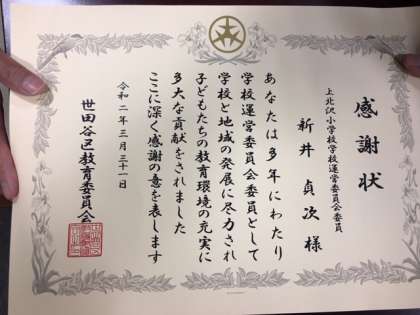 感謝状
上北沢小学校学校運営委員会委員
新井貞次様
あなたは多年にわたり
学校運営委員会委員として
学校と地域の発展に尽力され
子どもたちの教育環境の充実に
多大な貢献をされました
ここに深く感謝の意を表します
令和二年三月三十一日
世田谷区教育委員会